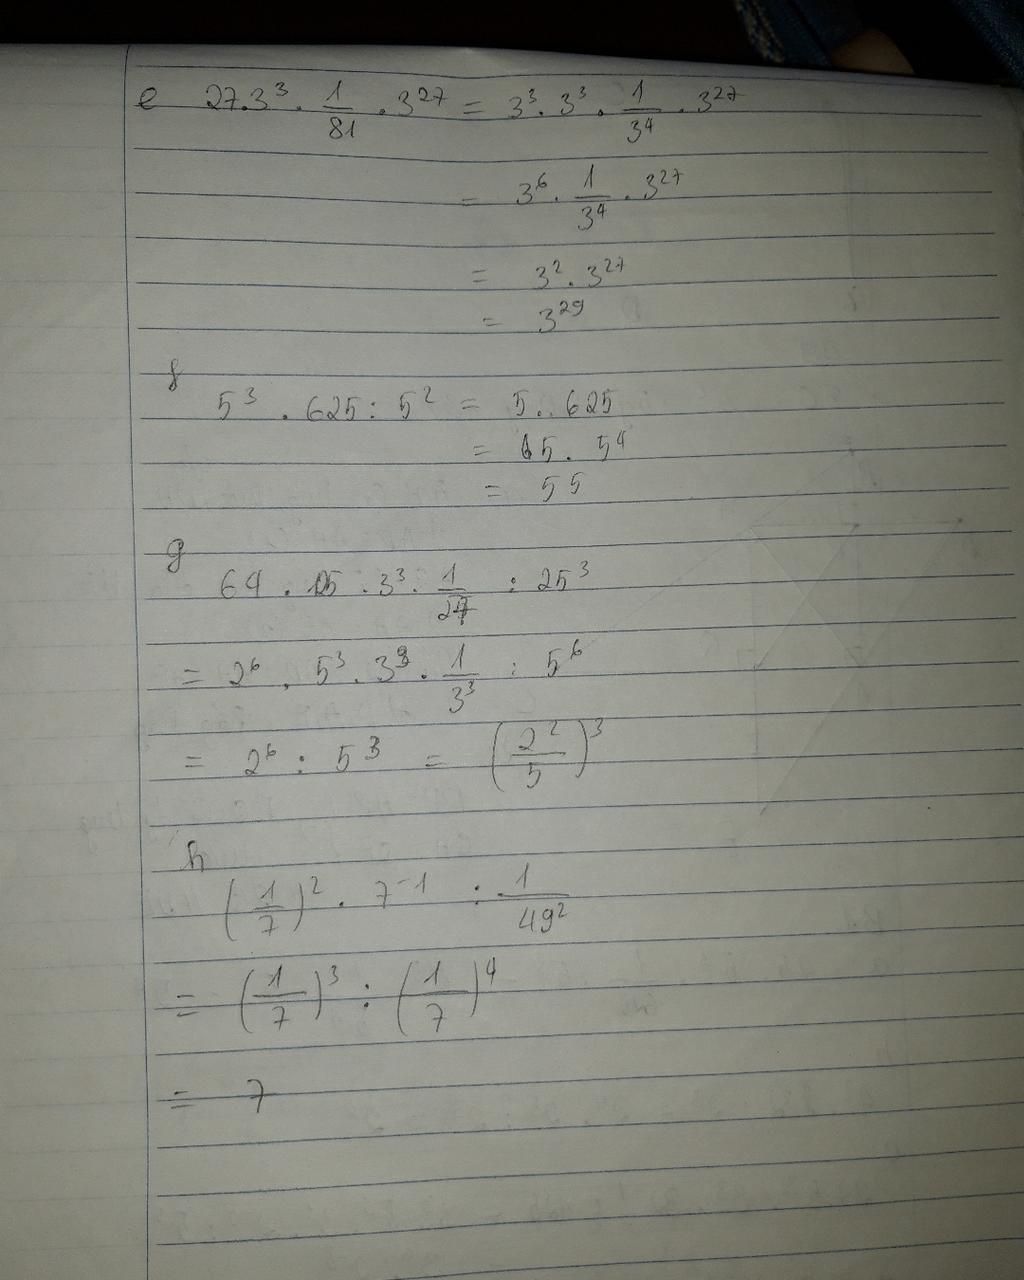 e 27.3³ . 1/81 . 3²⁷ = 3³ . 3³ . 1/3⁴ . 3²⁷
= 3⁶ . 1/3⁴ . 3²⁷
= 3² . 3²⁷
= 3²⁹
f
5³ . 625 : 5² = 5 . . 625
= 5 . 5⁴
= 5⁵
g
64 . 3³ . 1/27 : 25³
= 2⁶ . 5³ . 3³ . 1/3³ : 5⁶
= 2⁶ : 5³ = (2²/5)³
h
(1/7)² . 7⁻¹ : 1/49²
= (1/7)³ : (1/7)⁴
= 7